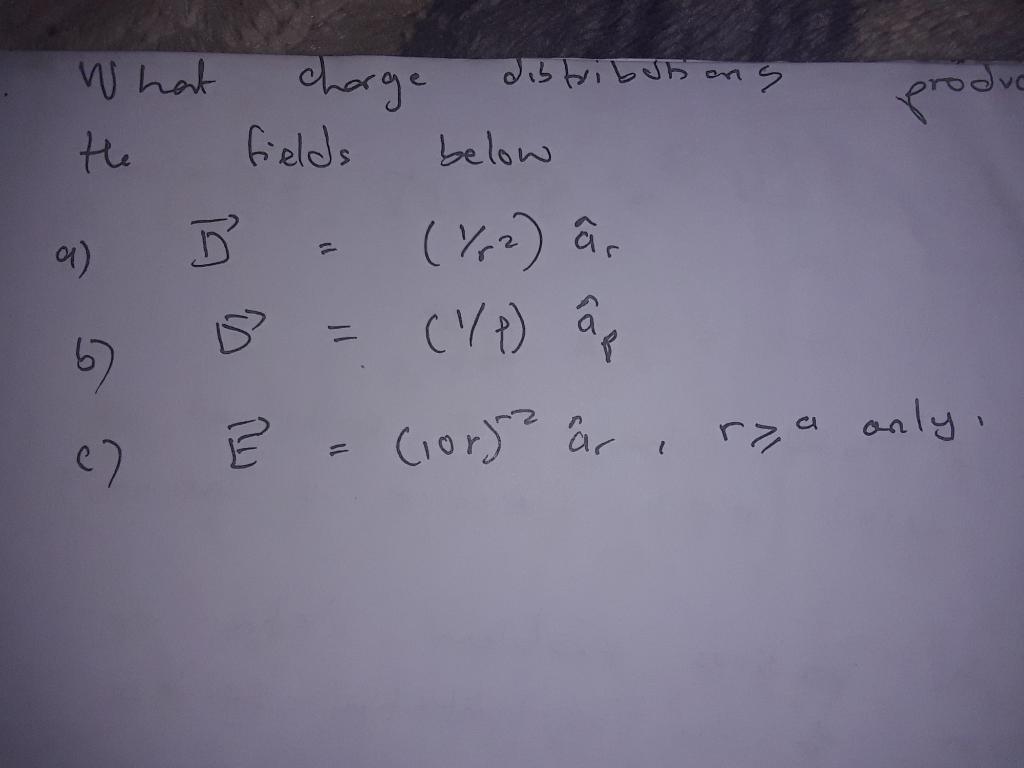 . What charge distributions produc
the fields below
a) D⃗ = (1/r²) âr
b) D⃗ = (1/ρ) âρ
c) E⃗ = (10r)⁻² âr , r ⩾ a only.